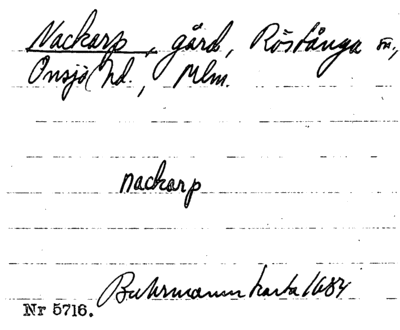 Nackarp, gård, Röstånga sn.,
Onsjö hd., Mlm.
nackarp
Buhrmanns karta 1684
Nr 5716.